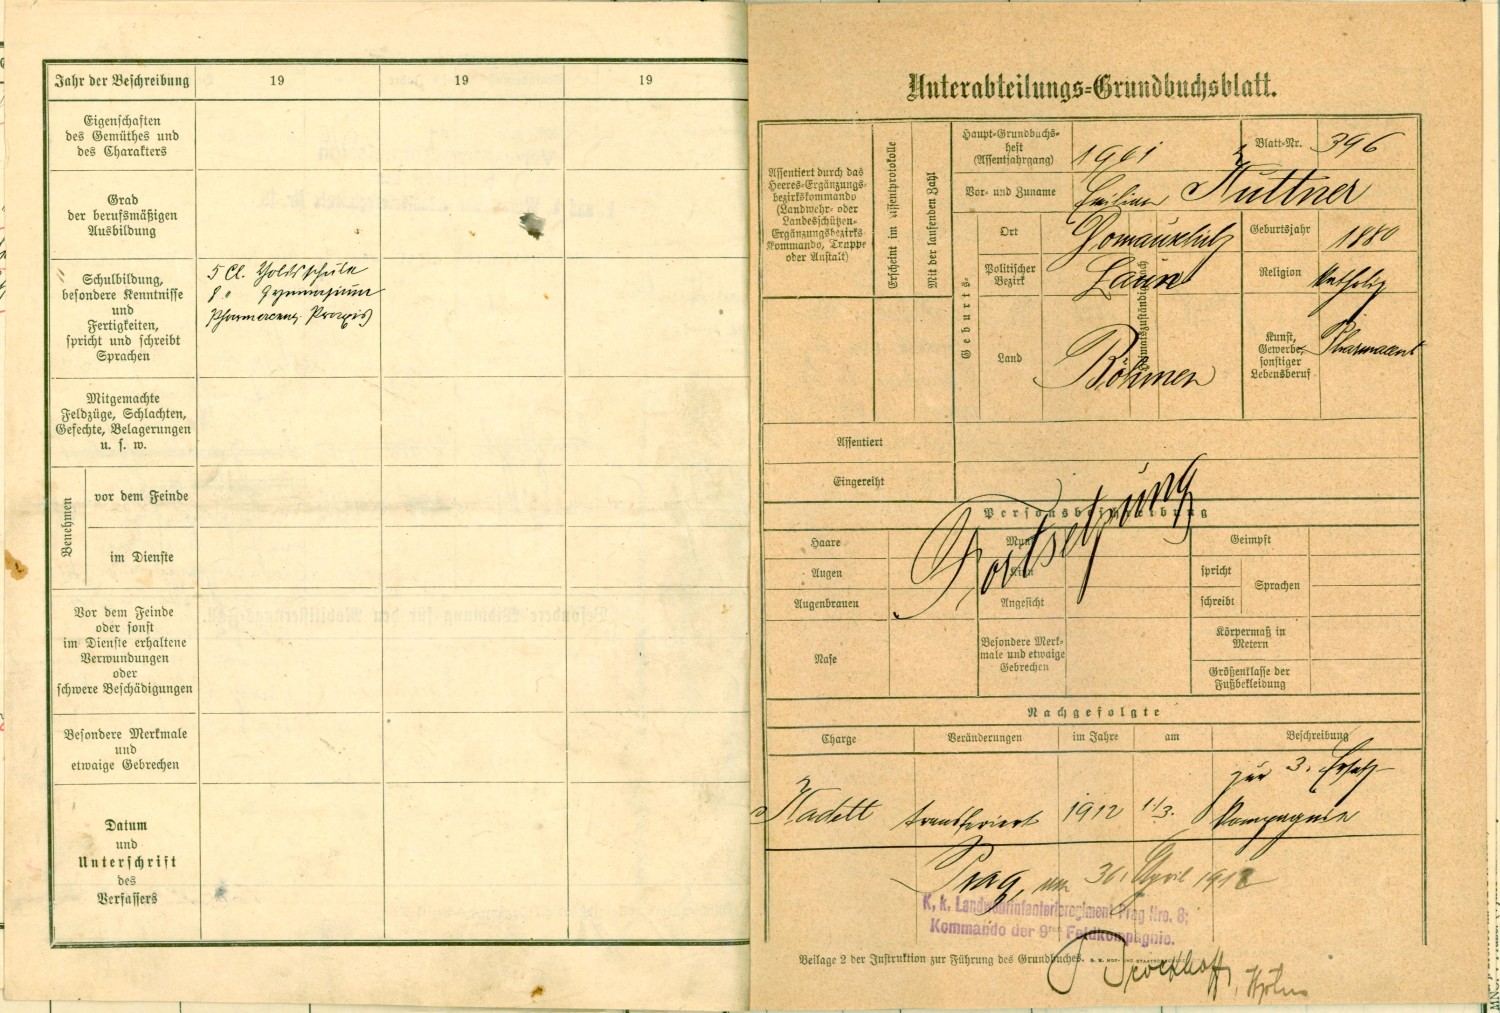 Jahr der Beschreibung
19
19
19
Eigenschaften
des Gemüthes und
des Charakters
Grad
der berufsmäßigen
Ausbildung
Schulbildung,
besondere Kenntnisse
und
Fertigkeiten,
spricht und schreibt
Sprachen
5 Cl. Volksschule
8 " Gymnasium
Pharmaceut. Praxis
Mitgemachte
Feldzüge, Schlachten,
Gefechte, Belagerungen
u. s. w.
Benehmen
vor dem Feinde
im Dienste
Vor dem Feinde
oder sonst
im Dienste erhaltene
Verwundungen
oder
schwere Beschädigungen
Besondere Merkmale
und
etwaige Gebrechen
Datum
und
Unterschrift
des
Verfassers
Unterabteilungs-Grundbuchsblatt.
Assentiert durch das
Heeres-Ergänzungs-
bezirkskommando
(Landwehr- oder
Landesschützen-
Ergänzungsbezirks-
Kommando, Truppe
oder Anstalt)
Erscheint im Assentprotokolle
Mit der laufenden Zahl
Haupt-Grundbuchs-
heft
(Assentjahrgang)
1901
Blatt-Nr.
396
Vor- und Zuname
Emilian Kuttner
Geburts-
Ort
Domaušchitz
Geburtsjahr
1880
Politischer
Bezirk
Laun
Heimatszuständig nach
Religion
katholisch
Land
Böhmen
Kunst,
Gewerbe,
sonstiger
Lebensberuf
Pharmaceut
Assentiert
Eingereiht
Fortsetzung
Personsbeschreibung
Haare
Mund
Geimpft
Augen
Kinn
spricht
Sprachen
Augenbrauen
Angesicht
schreibt
Nase
Besondere Merk-
male und etwaige
Gebrechen
Körpermaß in
Metern
Größenklasse der
Fußbekleidung
Nachgefolgte
Charge
Veränderungen
im Jahre
am
Beschreibung
Kadett
transferiert
1912
1/3.
zur 3. Ersatz-
kompagnie
Prag, am 30. April 1912
K. k. Landwehrinfanterieregiment Prag Nro. 8;
Kommando der 9ten Feldkompagnie.
Beilage 2 der Instruktion zur Führung des Grundbuches.